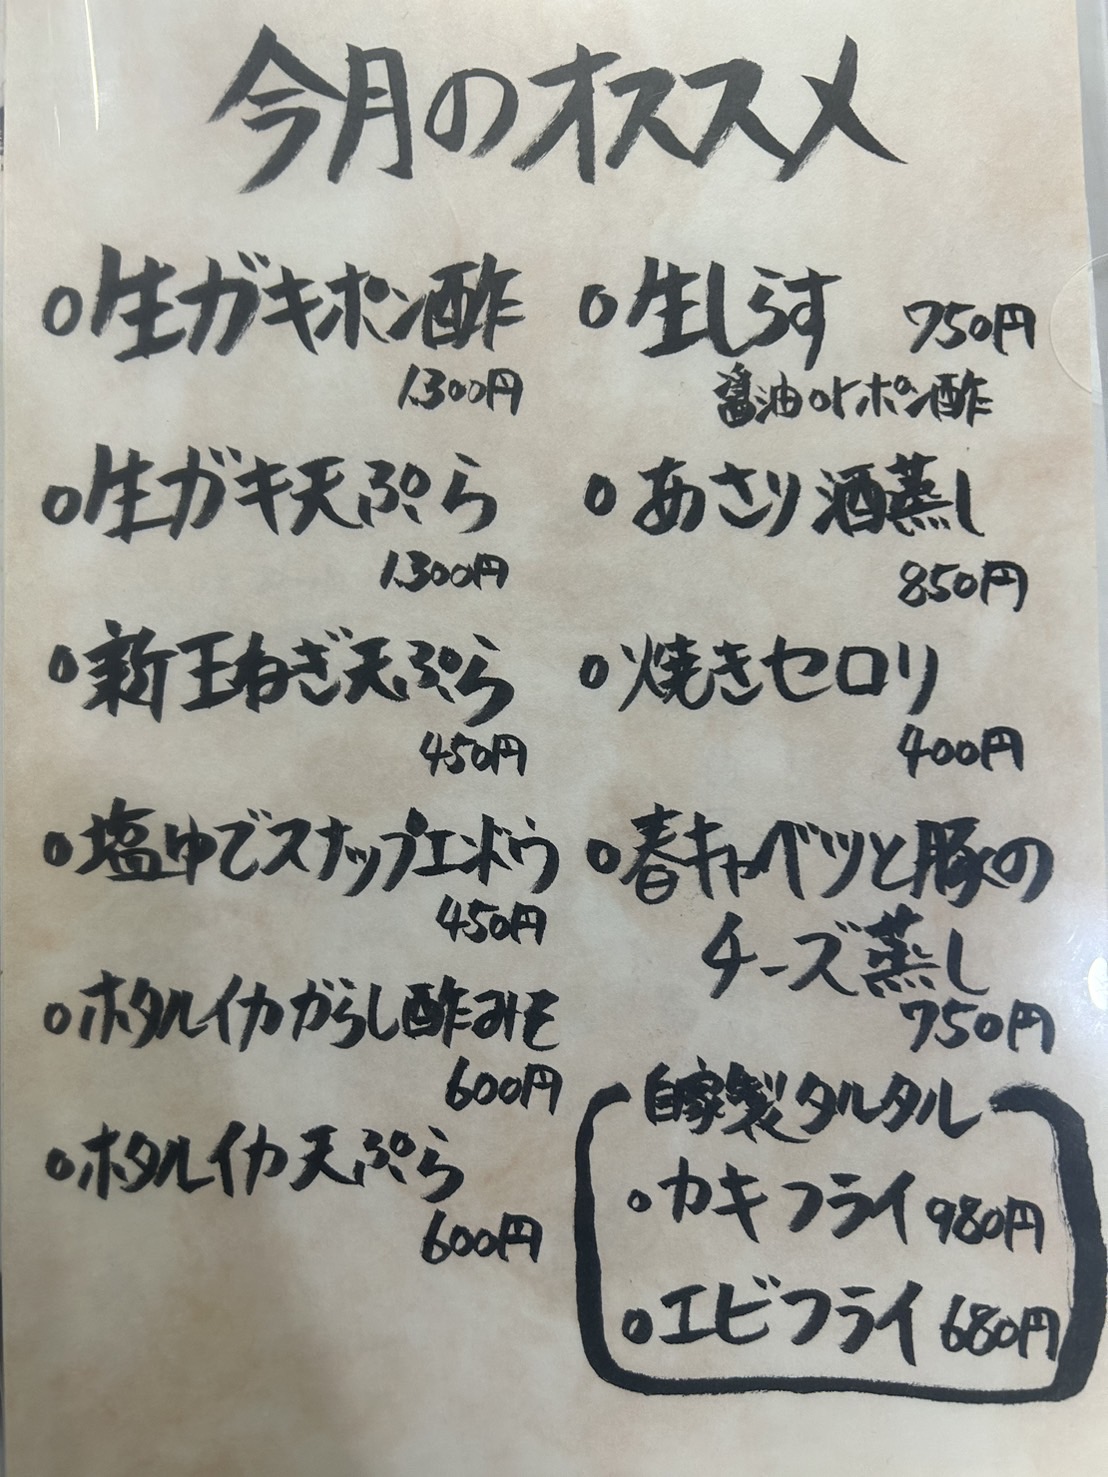 今月のオススメ
○生ガキポン酢
1.300円
○生ガキ天ぷら
1.300円
○新玉ねぎ天ぷら
450円
○塩ゆでスナップエンドウ
450円
○ホタルイカがらし酢みそ
600円
○ホタルイカ天ぷら
600円
○生しらす 750円
醤油orポン酢
○あさり酒蒸し
850円
○焼きセロリ
400円
○春キャベツと豚の
チーズ蒸し
750円
自家製タルタル
○カキフライ 980円
○エビフライ 680円